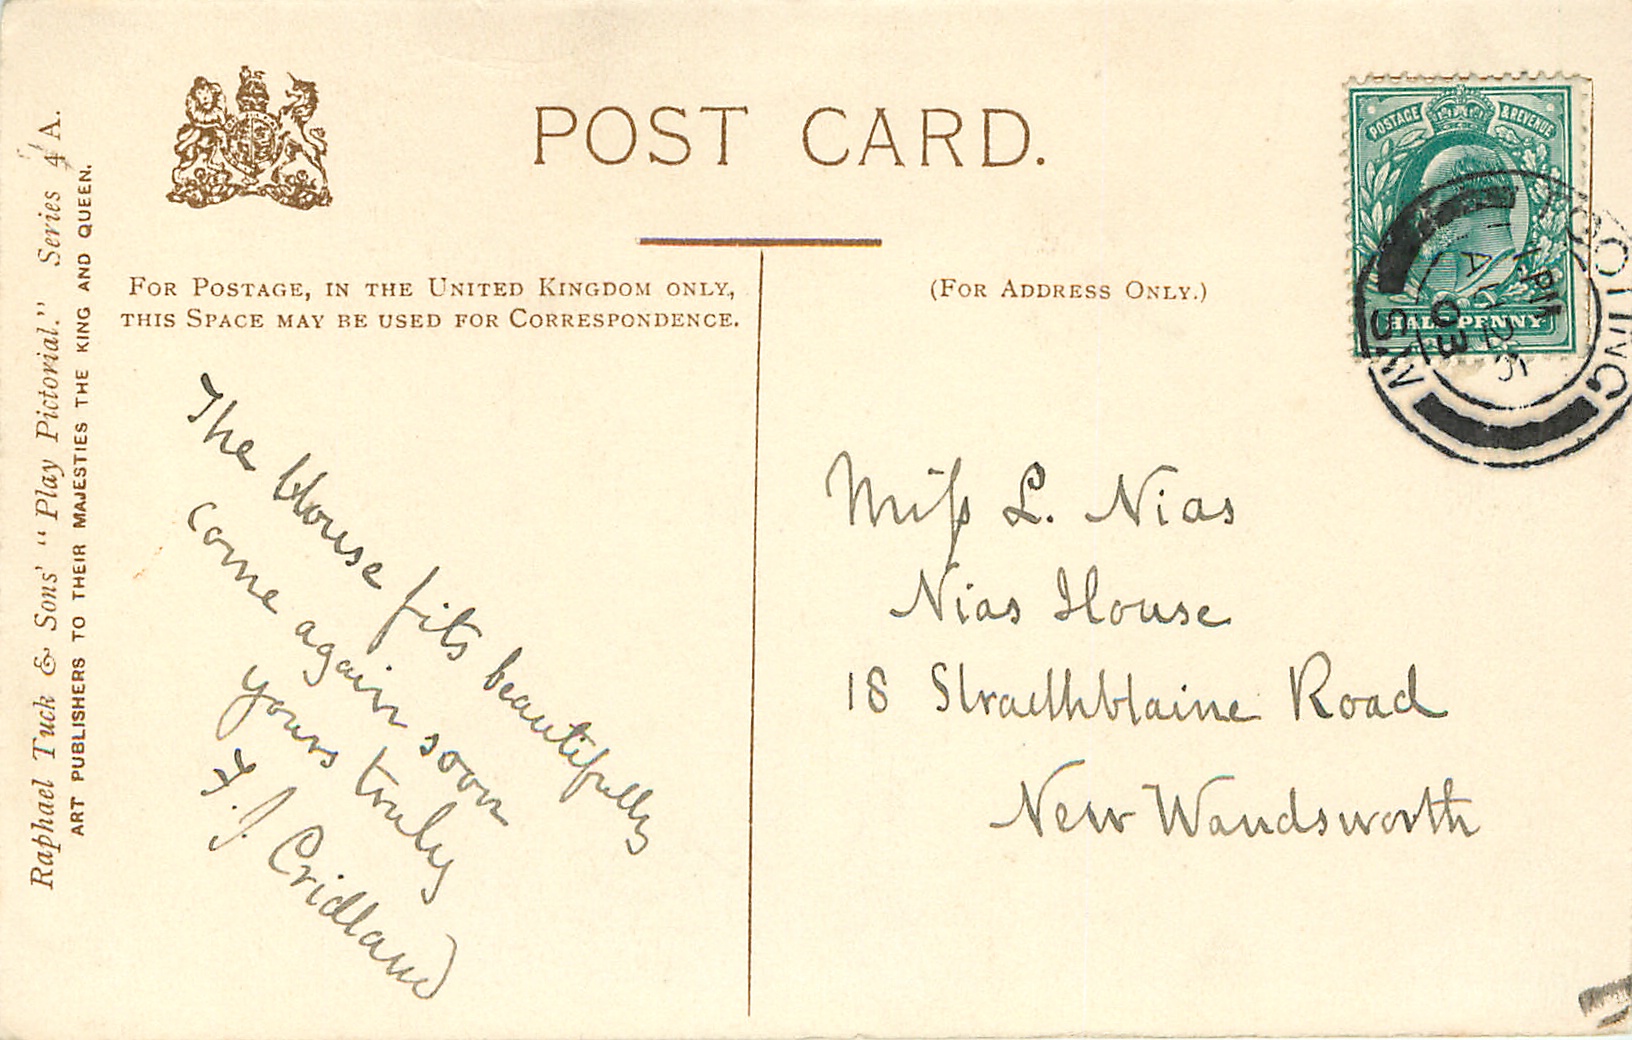 POST CARD.
FOR POSTAGE, IN THE UNITED KINGDOM ONLY,
THIS SPACE MAY BE USED FOR CORRESPONDENCE.
(FOR ADDRESS ONLY.)
Raphael Tuck & Sons' "Play Pictorial." Series 4 A.
ART PUBLISHERS TO THEIR MAJESTIES THE KING AND QUEEN.
The blouse fits beautifully
come again soon
yours truly
F. J. Cridland
Miss L. Nias
Nias House
18 Strathblaine Road
New Wandsworth
POSTAGE & REVENUE
HALFPENNY
TOOTING
S.W.
1 PM
AU 25
03